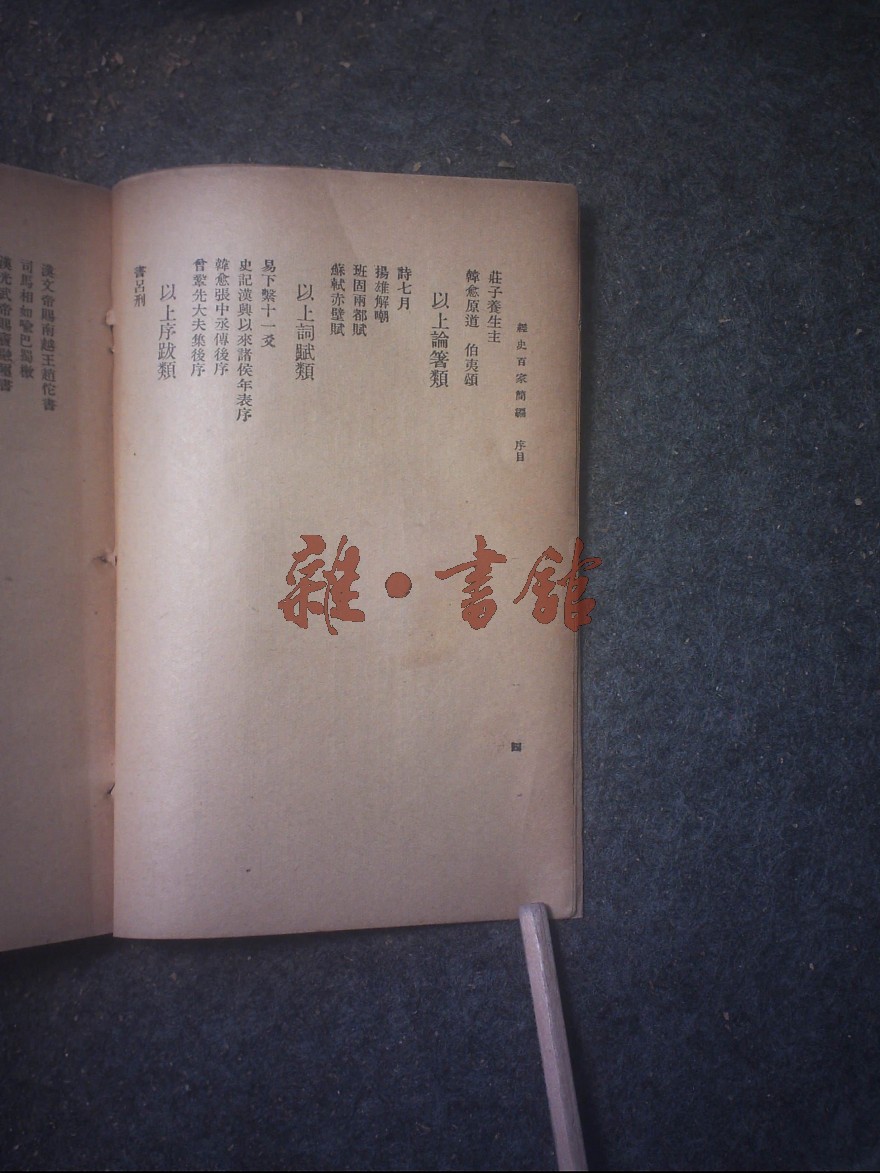 經史百家簡編 序目
四
莊子養生主
韓愈原道 伯夷頌
以上論箸類
詩七月
揚雄解嘲
班固兩都賦
蘇軾赤壁賦
以上詞賦類
易下繫十一爻
史記漢興以來諸侯年表序
韓愈張中丞傳後序
曾鞏先大夫集後序
以上序跋類
書呂刑
漢文帝賜南越王趙佗書
司馬相如喻巴蜀檄
漢光武帝賜竇融璽書
雜·書館